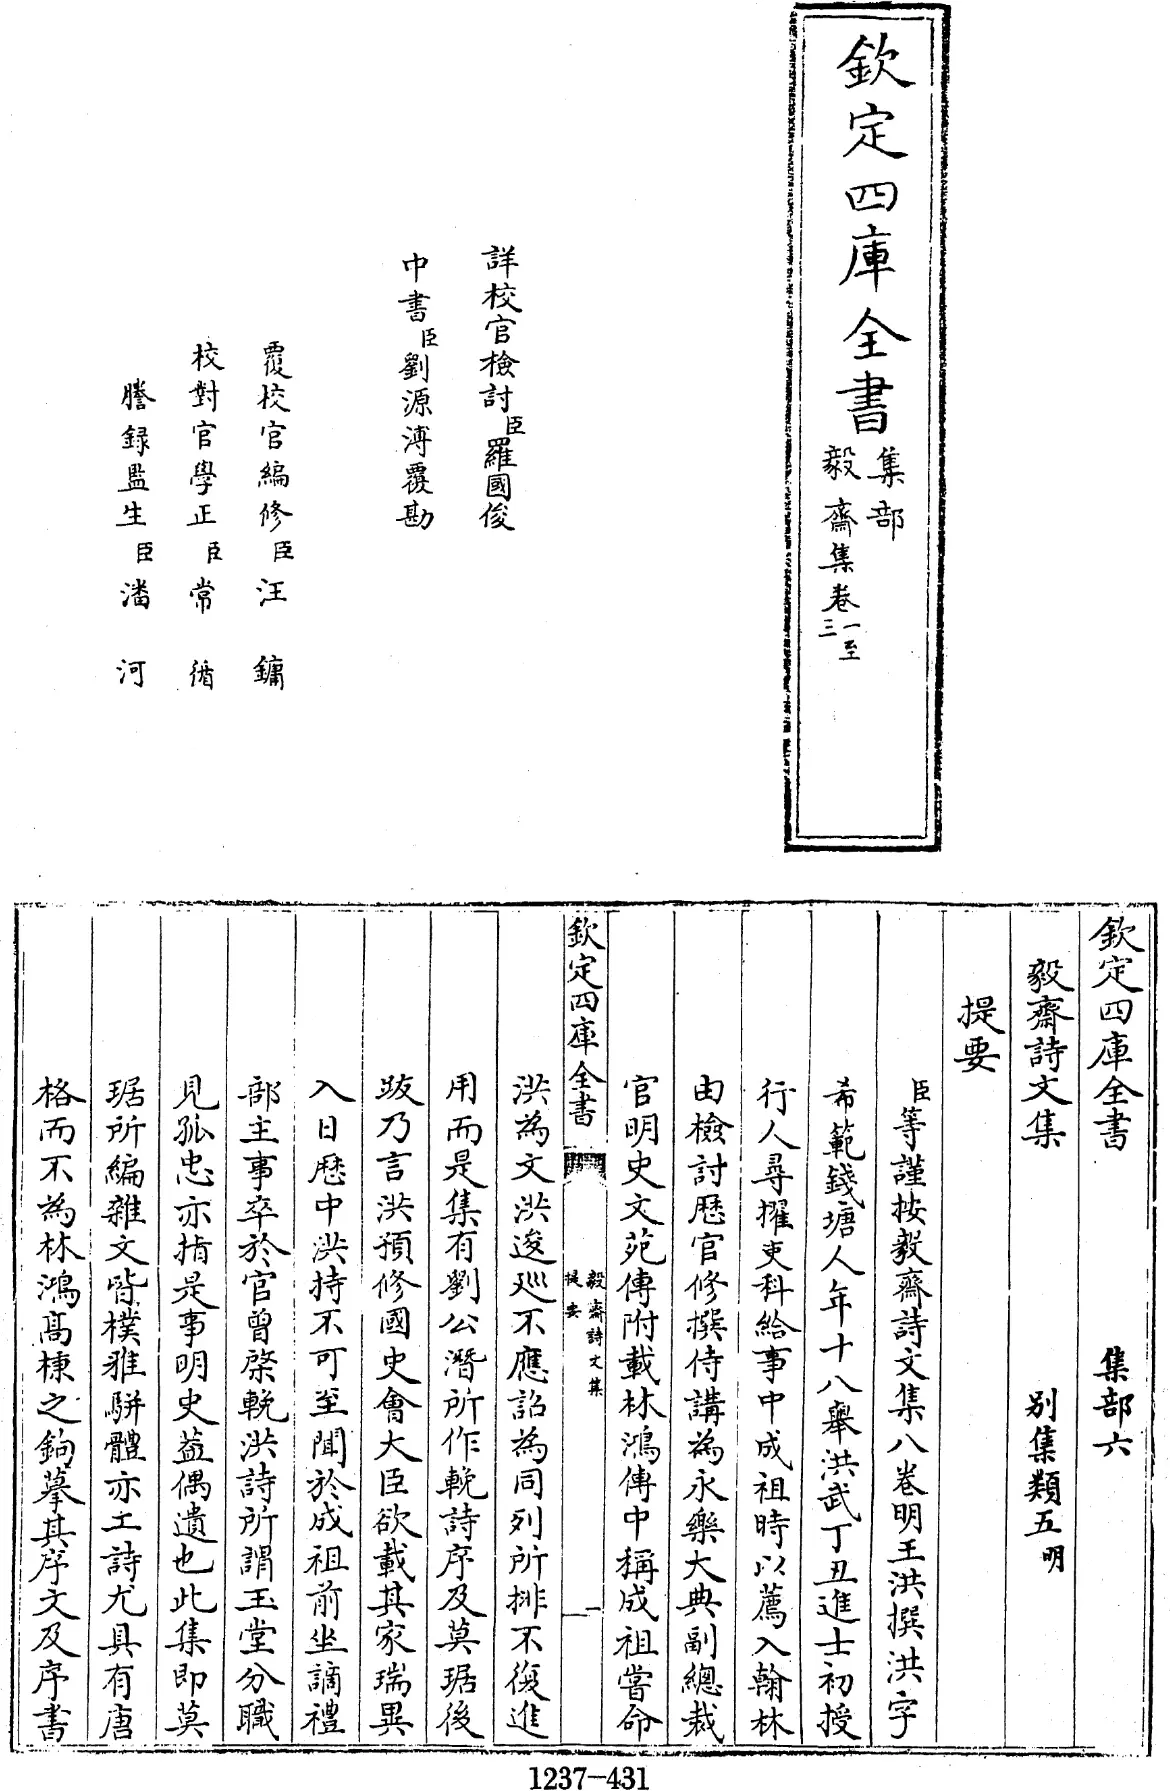 欽定四庫全書
集部
毅齋集卷一至
三
詳校官檢討臣羅國俊
中書臣劉源溥覆勘
覆校官編修臣汪鏞
校對官學正臣常循
謄録監生臣潘河
欽定四庫全書 集部六
毅齋詩文集 别集類五明
提要
臣等謹按毅齋詩文集八卷明王洪撰洪字
希範錢塘人年十八舉洪武丁丑進士初授
行人尋擢吏科給事中成祖時以薦入翰林
由檢討歷官修撰侍講為永樂大典副總裁
官明史文苑傳附載林鴻傳中稱成祖嘗命
欽定四庫全書
毅齋詩文集
提要
一
洪為文洪逡巡不應詔為同列所排不復進
用而是集有劉公潛所作輓詩序及莫琚後
跋乃言洪預修國史會大臣欲載其家瑞異
入日歷中洪持不可至聞於成祖前坐謫禮
部主事卒於官曾棨輓洪詩所謂玉堂分職
見孤忠亦指是事明史葢偶遺也此集即莫
琚所編雜文皆樸雅駢體亦工詩尤具有唐
格而不為林鴻高棅之鉤摹其序文及序書
1237—431